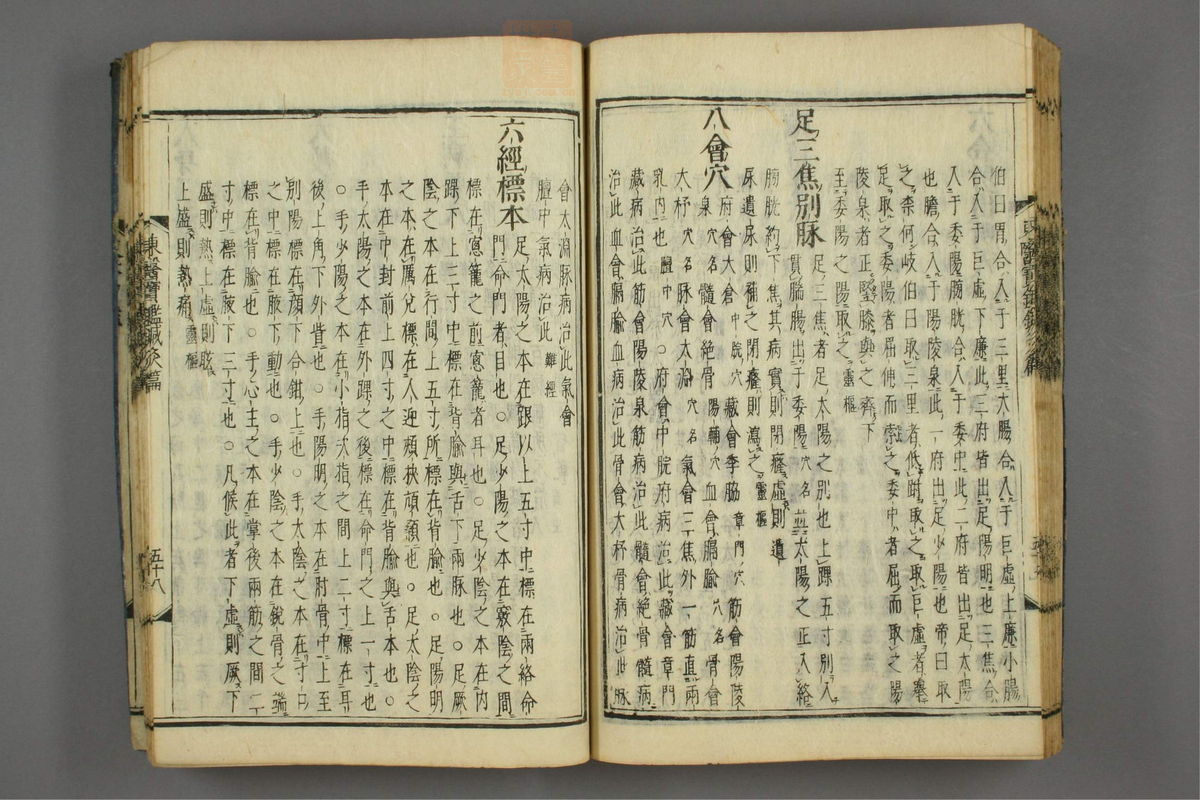 伯曰胃合入于三里大腸合入于巨虛上廉小腸
合入于巨虛下廉此三府皆出足陽明也三焦合
入于委陽膀胱合入于委中此二府皆出足太陽
也膽合入于陽陵泉此一府出足少陽也帝曰取
之柰何岐伯曰取三里者低跗取之取巨虛者舉
足取之委陽者屈伸而索之委中者屈而取之陽
陵泉者正竪膝與之齊下
至委陽之陽取之靈樞
足三焦別脉 足三焦者足太陽之別也上踝五寸別入
貫腨腸出于委陽穴名並太陽之正入絡
膀胱約下焦其病實則閉癃虛則遺
尿遺尿則補之閉癃則瀉之靈樞
八會穴 府會大倉中脘穴藏會季脇章門穴筋會陽陵
泉穴名髓會絶骨陽輔穴血會膈腧穴名骨會
大杼穴名脉會太淵穴名氣會三焦外一筋直兩
乳內也膻中穴○府會中脘府病治此藏會章門
藏病治此筋會陽陵泉筋病治此髓會絶骨髓病
治此血會膈腧血病治此骨會大杼骨病治此脉
會太淵脉病治此氣會
膻中氣病治此難經
六經標本 足太陽之本在跟以上五寸中標在兩絡命
門命門者目也○足少陽之本在竅陰之間
標在窓籠之前窓籠者耳也○足少陰之本在內
踝下上三寸中標在背腧與舌下兩脉也○足厥
陰之本在行間上五寸所標在背腧也○足陽明
之本在厲兌標在人迎頰挾頏顙也○足太陰之
本在中封前上四寸之中標在背腧與舌本也○
手太陽之本在外踝之後標在命門之上一寸也
○手少陽之本在小指次指之間上二寸標在耳
後上角下外眥也○手陽明之本在肘骨中上至
別陽標在顔下合鉗上也○手太陰之本在寸口
之中標在腋下動也○手少陰之本在銳骨之端
標在背腧也○手心主之本在掌後兩筋之間二
寸中標在腋下三寸也○凡候此者下虛則厥下
盛則熱上虛則眩
上盛則熱痛靈樞
東醫寶鑑鍼灸篇
五十八